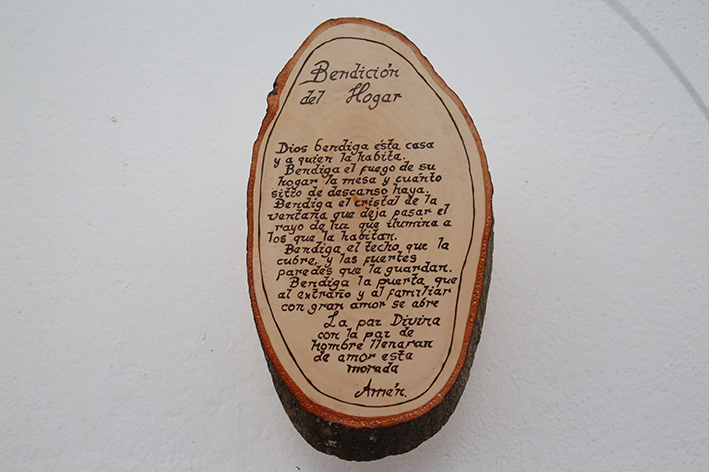 Bendición
del Hogar
Dios bendiga ésta casa
y a quien la habita.
Bendiga el fuego de su
hogar la mesa y cuanto
sitio de descanso haya.
Bendiga el cristal de la
ventana que deja pasar el
rayo de luz que ilumina a
los que la habitan.
Bendiga el techo que la
cubre, y las fuertes
paredes que la guardan.
Bendiga la puerta que
al extraño y al familiar
con gran amor se abre
La paz Divina
con la paz de
hombre llenaran
de amor esta
morada
Amén.